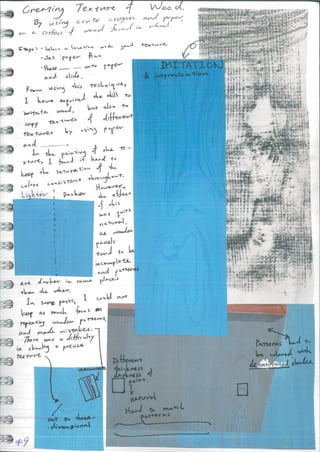 Creating Texture of Wood
By using conte crayons and paper,
on a surface of wood found in school
Steps: - Select a location with good texture
- Set paper flat
- Press onto paper
and slide.
From using this technique,
I have acquired the skill to
imitate wood, but also to
copy textures of different
textures by using paper
and
In the painting of the te-
xture, I found it hard to
keep the saturation of the
colors consistent throughout.
Lighter Darker However,
the effect
of this
was quite
natural,
as wooden
panels
tend to be
incomplete
and patterns
are darker in some places
than the other.
In some parts, I could not
keep as much focus on
repeating wooden patterns,
and made mistakes.
There was a difficulty
in choosing a precise
texture
not so three-
dimensional
49
IMITATION
& improvisation
Different
thickness
darkness of
paint
natural
Hard to until
patterns
Patterns had to
be colored with
shades.